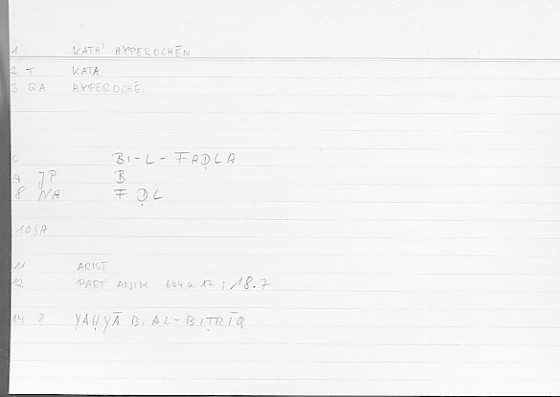 1 KATH' HYPEROCHĒN
2 T KATA
3 QA HYPEROCHĒ
6 BI-L-FAḌLA
7 JP B
8 NA F Ḍ L
10 SA
11 ARIST
12 PART ANIM 684 a 17 ; 18.7
14 ? YAḤYĀ B. AL-BIṬRĪQ